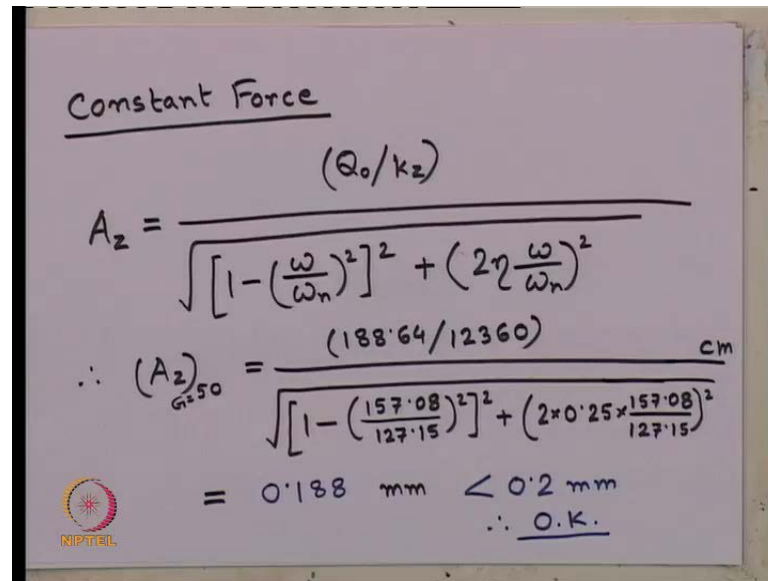 Constant Force
A_z = (Q₀/k_z) / √([1-(ω/ω_n)²]² + (2η ω/ω_n)²)
∴ (A_z)_{G=50} = (188.64/12360) / √([1-(157.08/127.15)²]² + (2×0.25×157.08/127.15)²) cm
= 0.188 mm < 0.2 mm
∴ O.K.
NPTEL